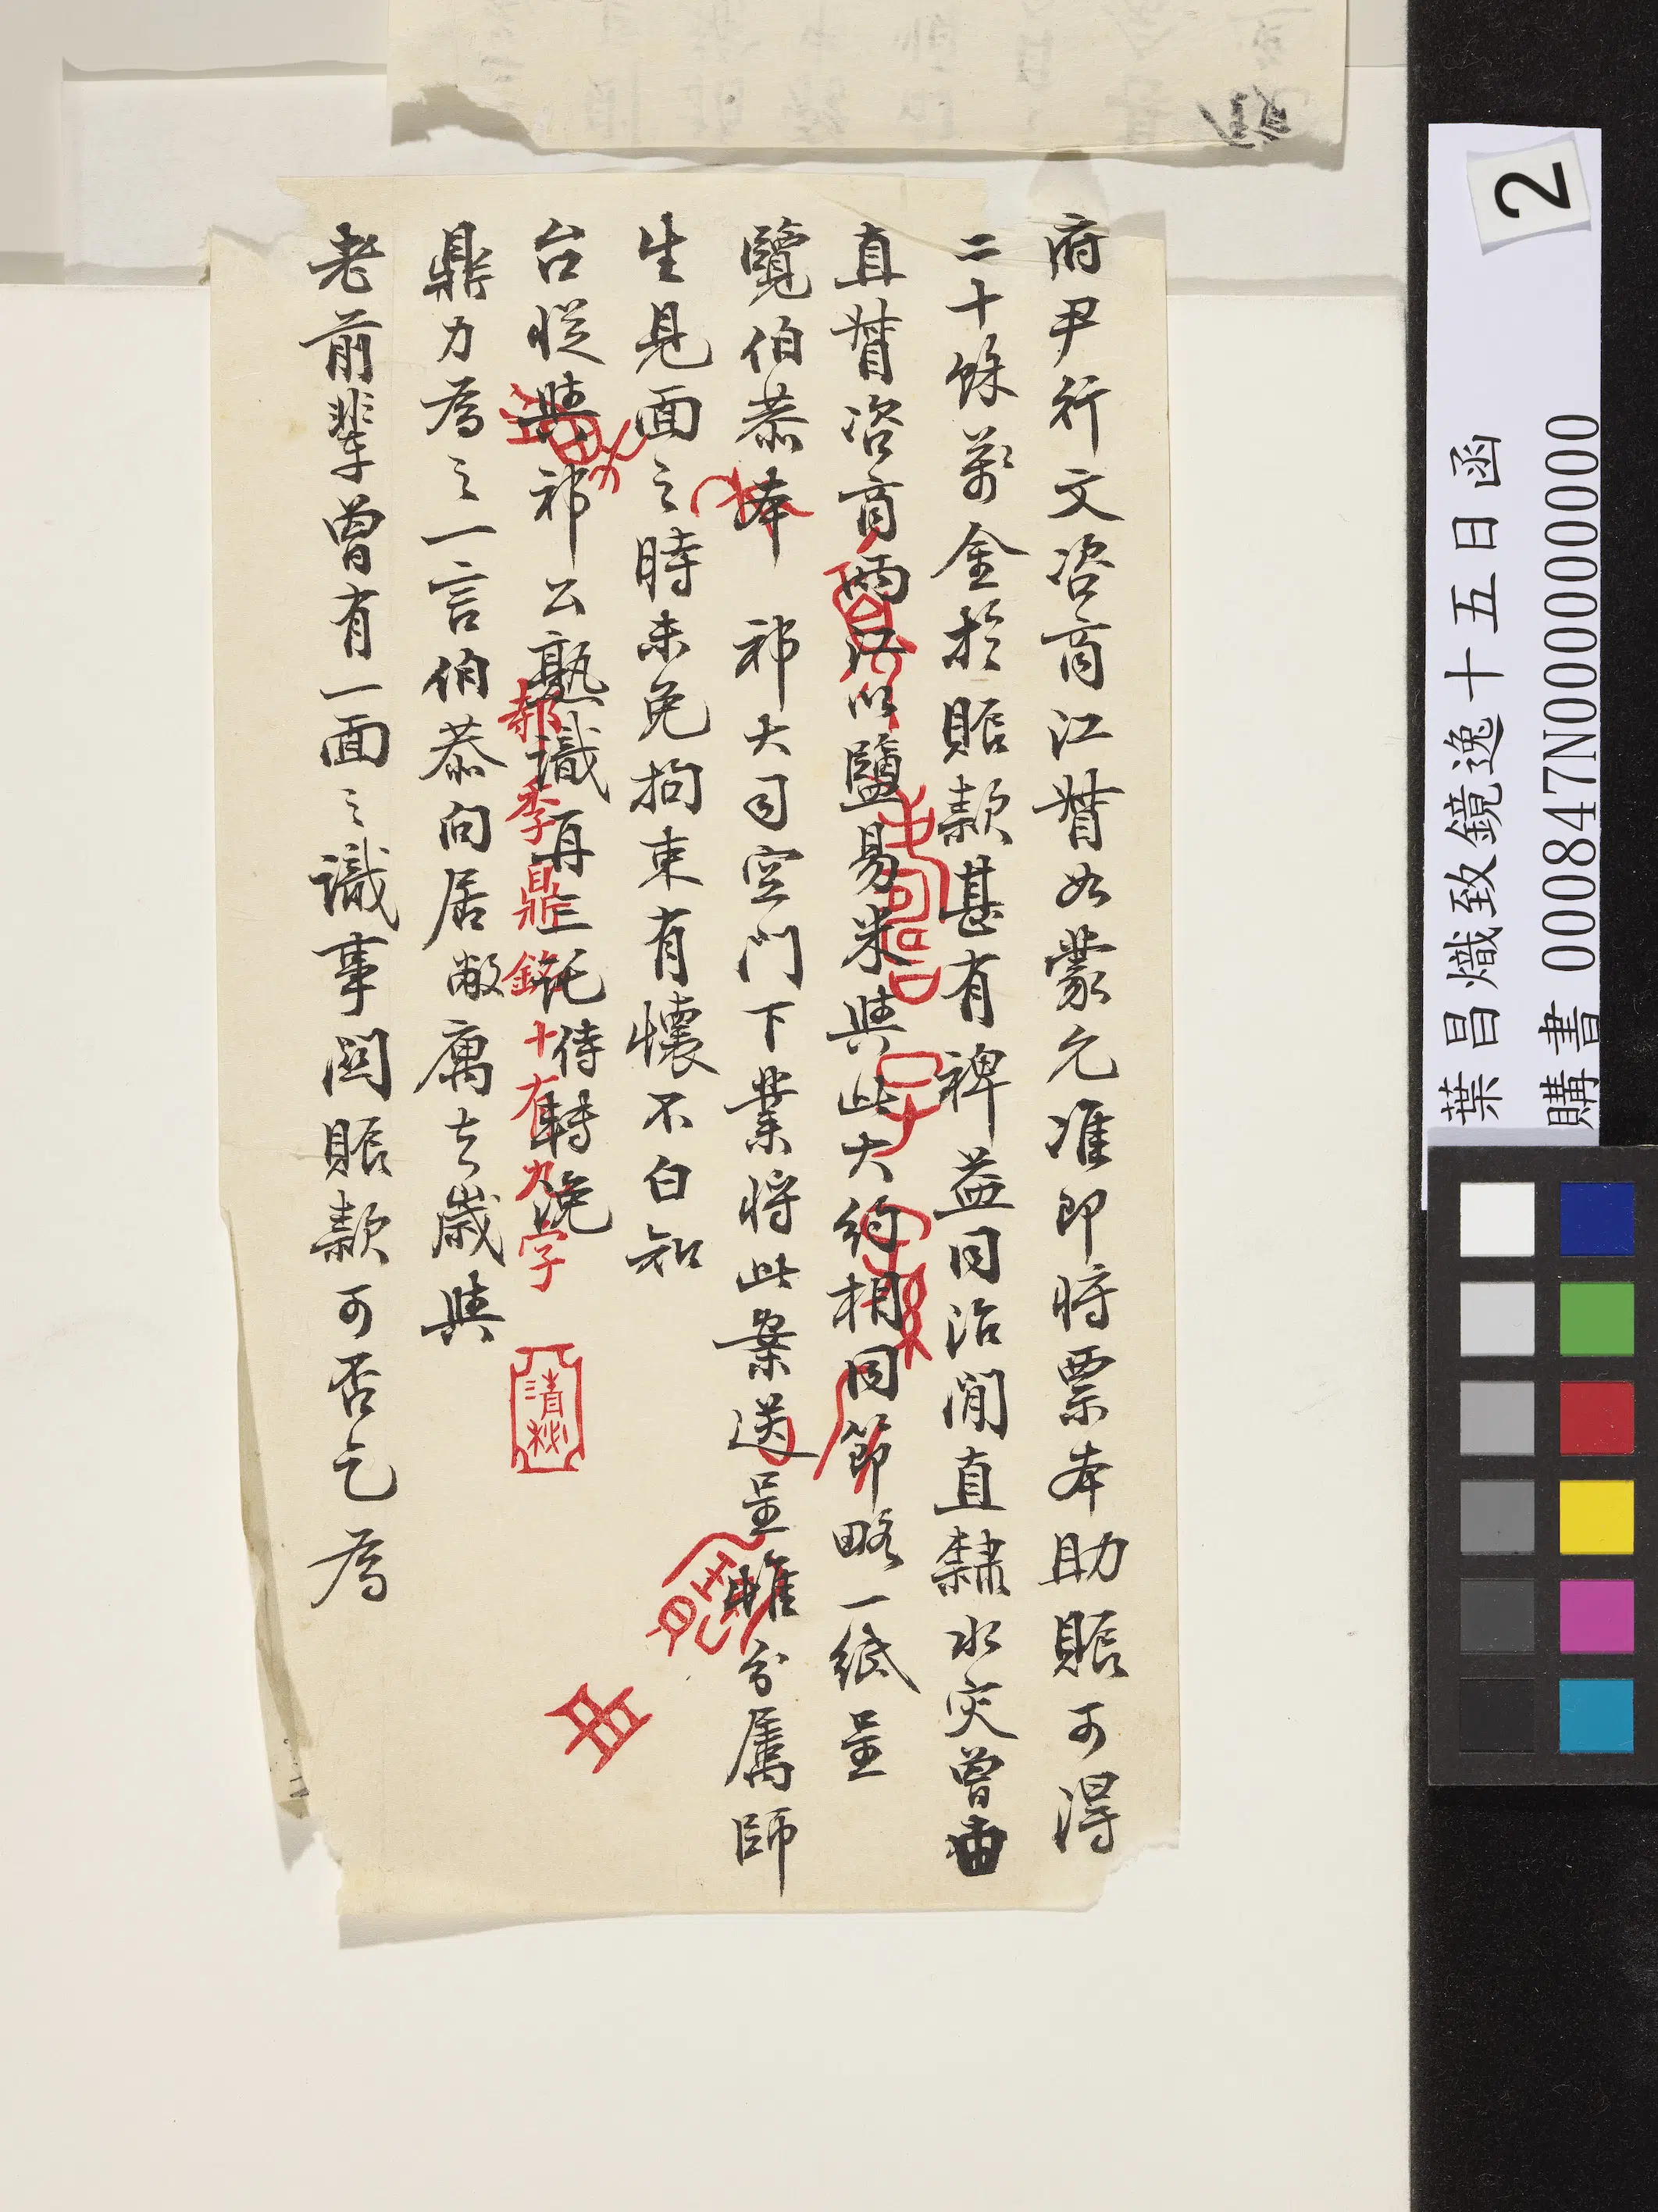 府尹行文咨商江督如蒙允准即將票本助賑可得
二十餘萬金於賑款甚有裨益同治間直隸水灾曾由
直督咨商兩江以鹽易米與此大約相同節略一紙呈
覽伯恭本 祁大司空門下業將此案送呈惟分屬師
生見面之時未免拘束有懷不白知
台從與祁公熟識再三託侍轉浼
鼎力為之一言伯恭向居敝寓去歲與
老前輩曾有一面之識事關賑款可否乞為
郝季鼎銘十有九字
清秘
2
葉昌熾致鏡逸十五日函
購書 000847N000000000